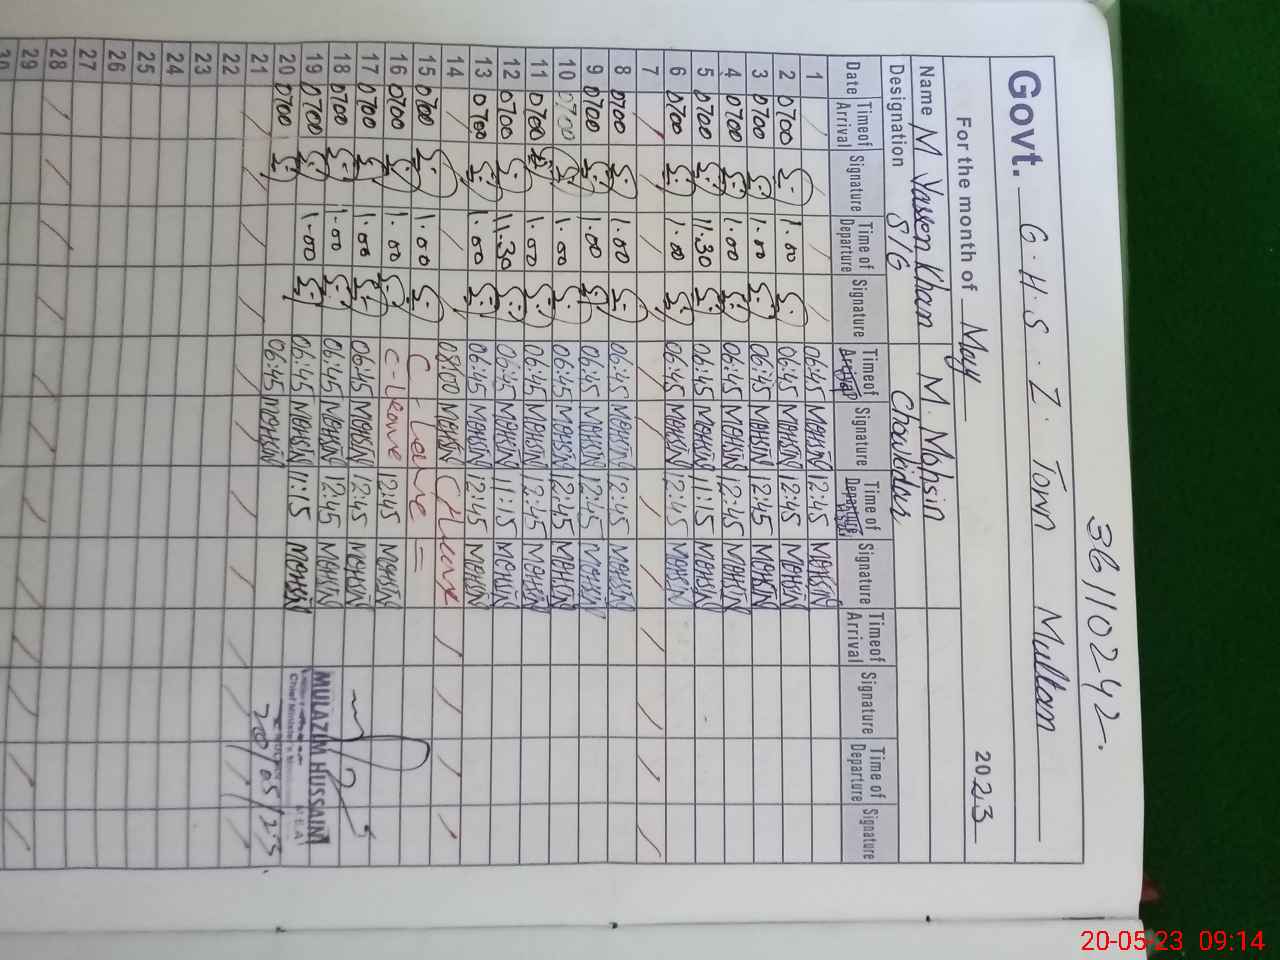 36110242.
Govt. G.H.S. Z. Town Multan
For the month of May 2023
Name M Yaseen Khan M. Mohsin
Designation S/G Choukidar
Date Timeof Arrival Signature Time of Departure Signature Timeof Arrival Signature Time of Departure Signature Timeof Arrival Signature Time of Departure Signature
1 06:45 MOHSIN 12:45 MOHSIN
2 0700 1.00 06:45 MOHSIN 12:45 MOHSIN
3 0700 1.00 06:45 MOHSIN 12:45 MOHSIN
4 0700 1.00 06:45 MOHSIN 12:45 MOHSIN
5 0700 11.30 06:45 MOHSIN 11:15 MOHSIN
6 0700 1.00 06:45 MOHSIN 12:45 MOHSIN
7
8 0700 1.00 06:45 MOHSIN 12:45 MOHSIN
9 0700 1.00 06:45 MOHSIN 12:45 MOHSIN
10 0700 1.00 06:45 MOHSIN 12:45 MOHSIN
11 0700 1.00 06:45 MOHSIN 12:45 MOHSIN
12 0700 11.30 06:45 MOHSIN 11:15 MOHSIN
13 0700 1.00 06:45 MOHSIN 12:45 MOHSIN
14 08:00 MOHSIN
15 0700 1.00 C-Leave
16 0700 1.00 C-Leave 12:45 MOHSIN
17 0700 1.00 06:45 MOHSIN 12:45 MOHSIN
18 0700 1.00 06:45 MOHSIN 12:45 MOHSIN
19 0700 1.00 06:45 MOHSIN 11:15 MOHSIN
20 0700 06:45 MOHSIN
MULAZIM HUSSAIN
Chief Minister's
20/05/23
21
22
23
24
25
26
27
28
29
30
20-05-23 09:14